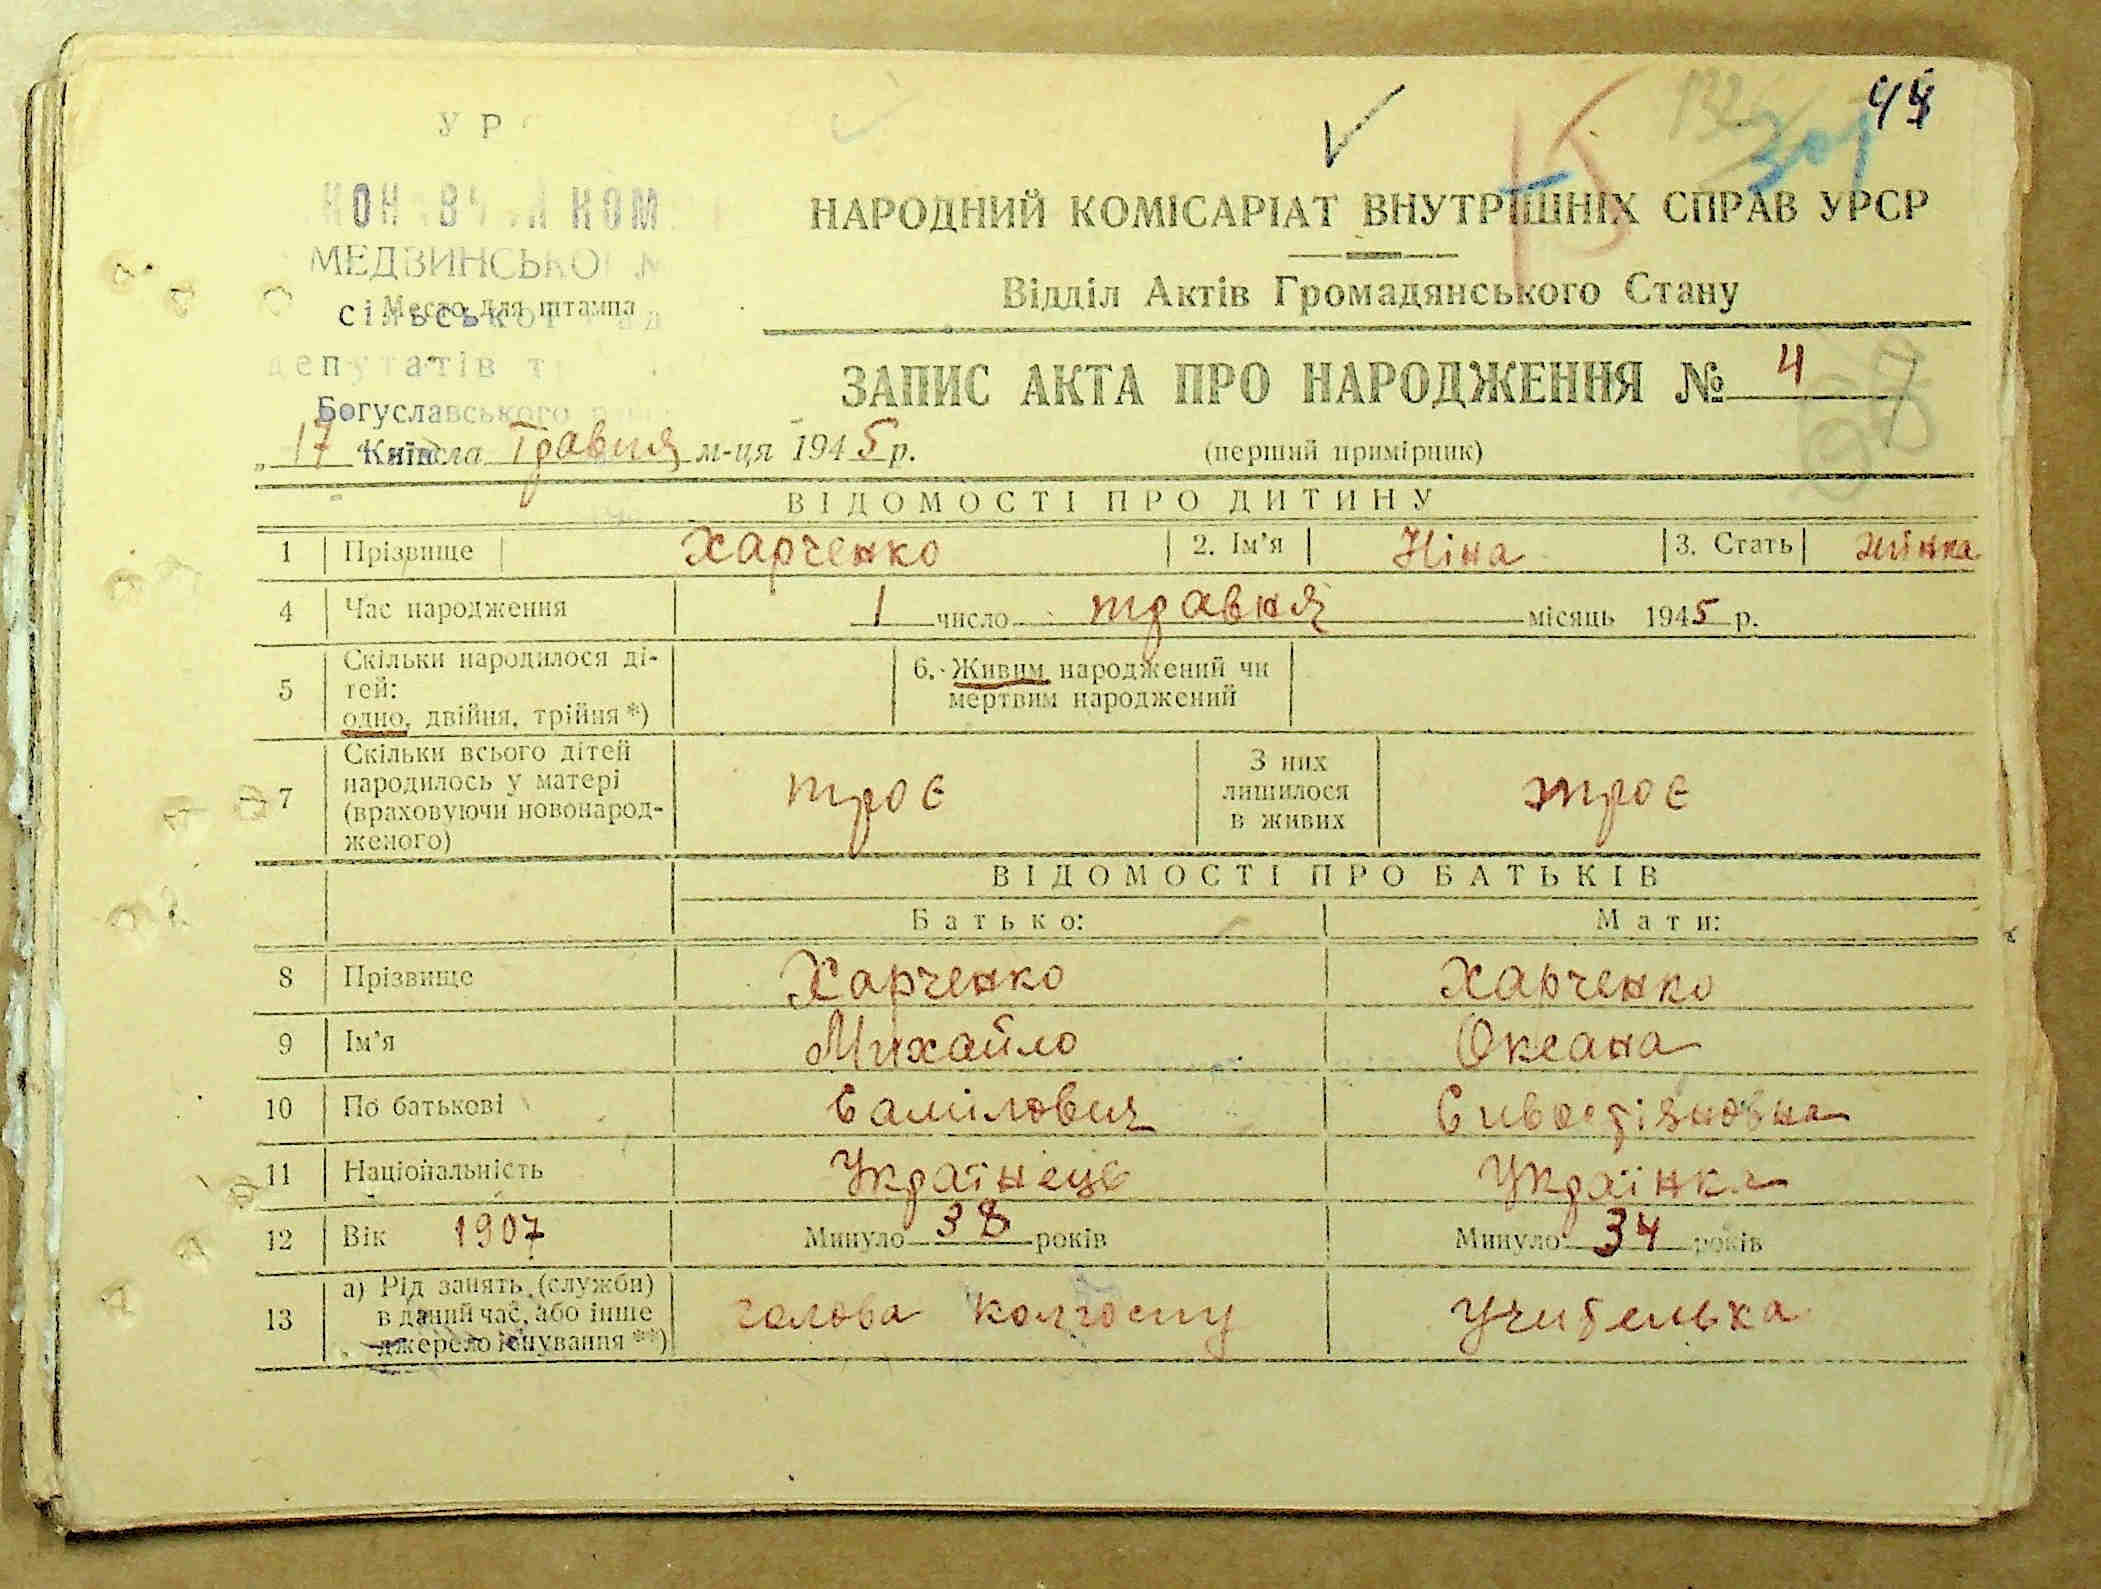 У Р
МЕДВИНСЬКО
Место для штампа
сільсько
депутатів т
Богуславського
Київ
44
132
301
15
НАРОДНИЙ КОМІСАРІАТ ВНУТРІШНІХ СПРАВ УРСР
Відділ Актів Громадянського Стану
ЗАПИС АКТА ПРО НАРОДЖЕННЯ № 4
„ 17 числа Травня м-ця 1945 р.
(перший примірник)
ВІДОМОСТІ ПРО ДИТИНУ
1 Прізвище Харченко 2. Ім'я Ніна 3. Стать жінка
4 Час народження 1 число травня місяць 1945 р.
5 Скільки народилося ді-
тей:
одно, двійня, трійня*)
6. Живим народжений чи
мертвим народжений
7 Скільки всього дітей
народилось у матері
(враховуючи новонарод-
женого)
троє
З них
лишилося
в живих
троє
ВІДОМОСТІ ПРО БАТЬКІВ
Батько: Мати:
8 Прізвище Харченко Харченко
9 Ім'я Михайло Оксана
10 По батькові
11 Національність Українець Українка
12 Вік 1907 Минуло 38 років Минуло 34 років
13 а) Рід занять (служби)
в даний час, або інше
джерело існування **)
голова колгоспу Учителька